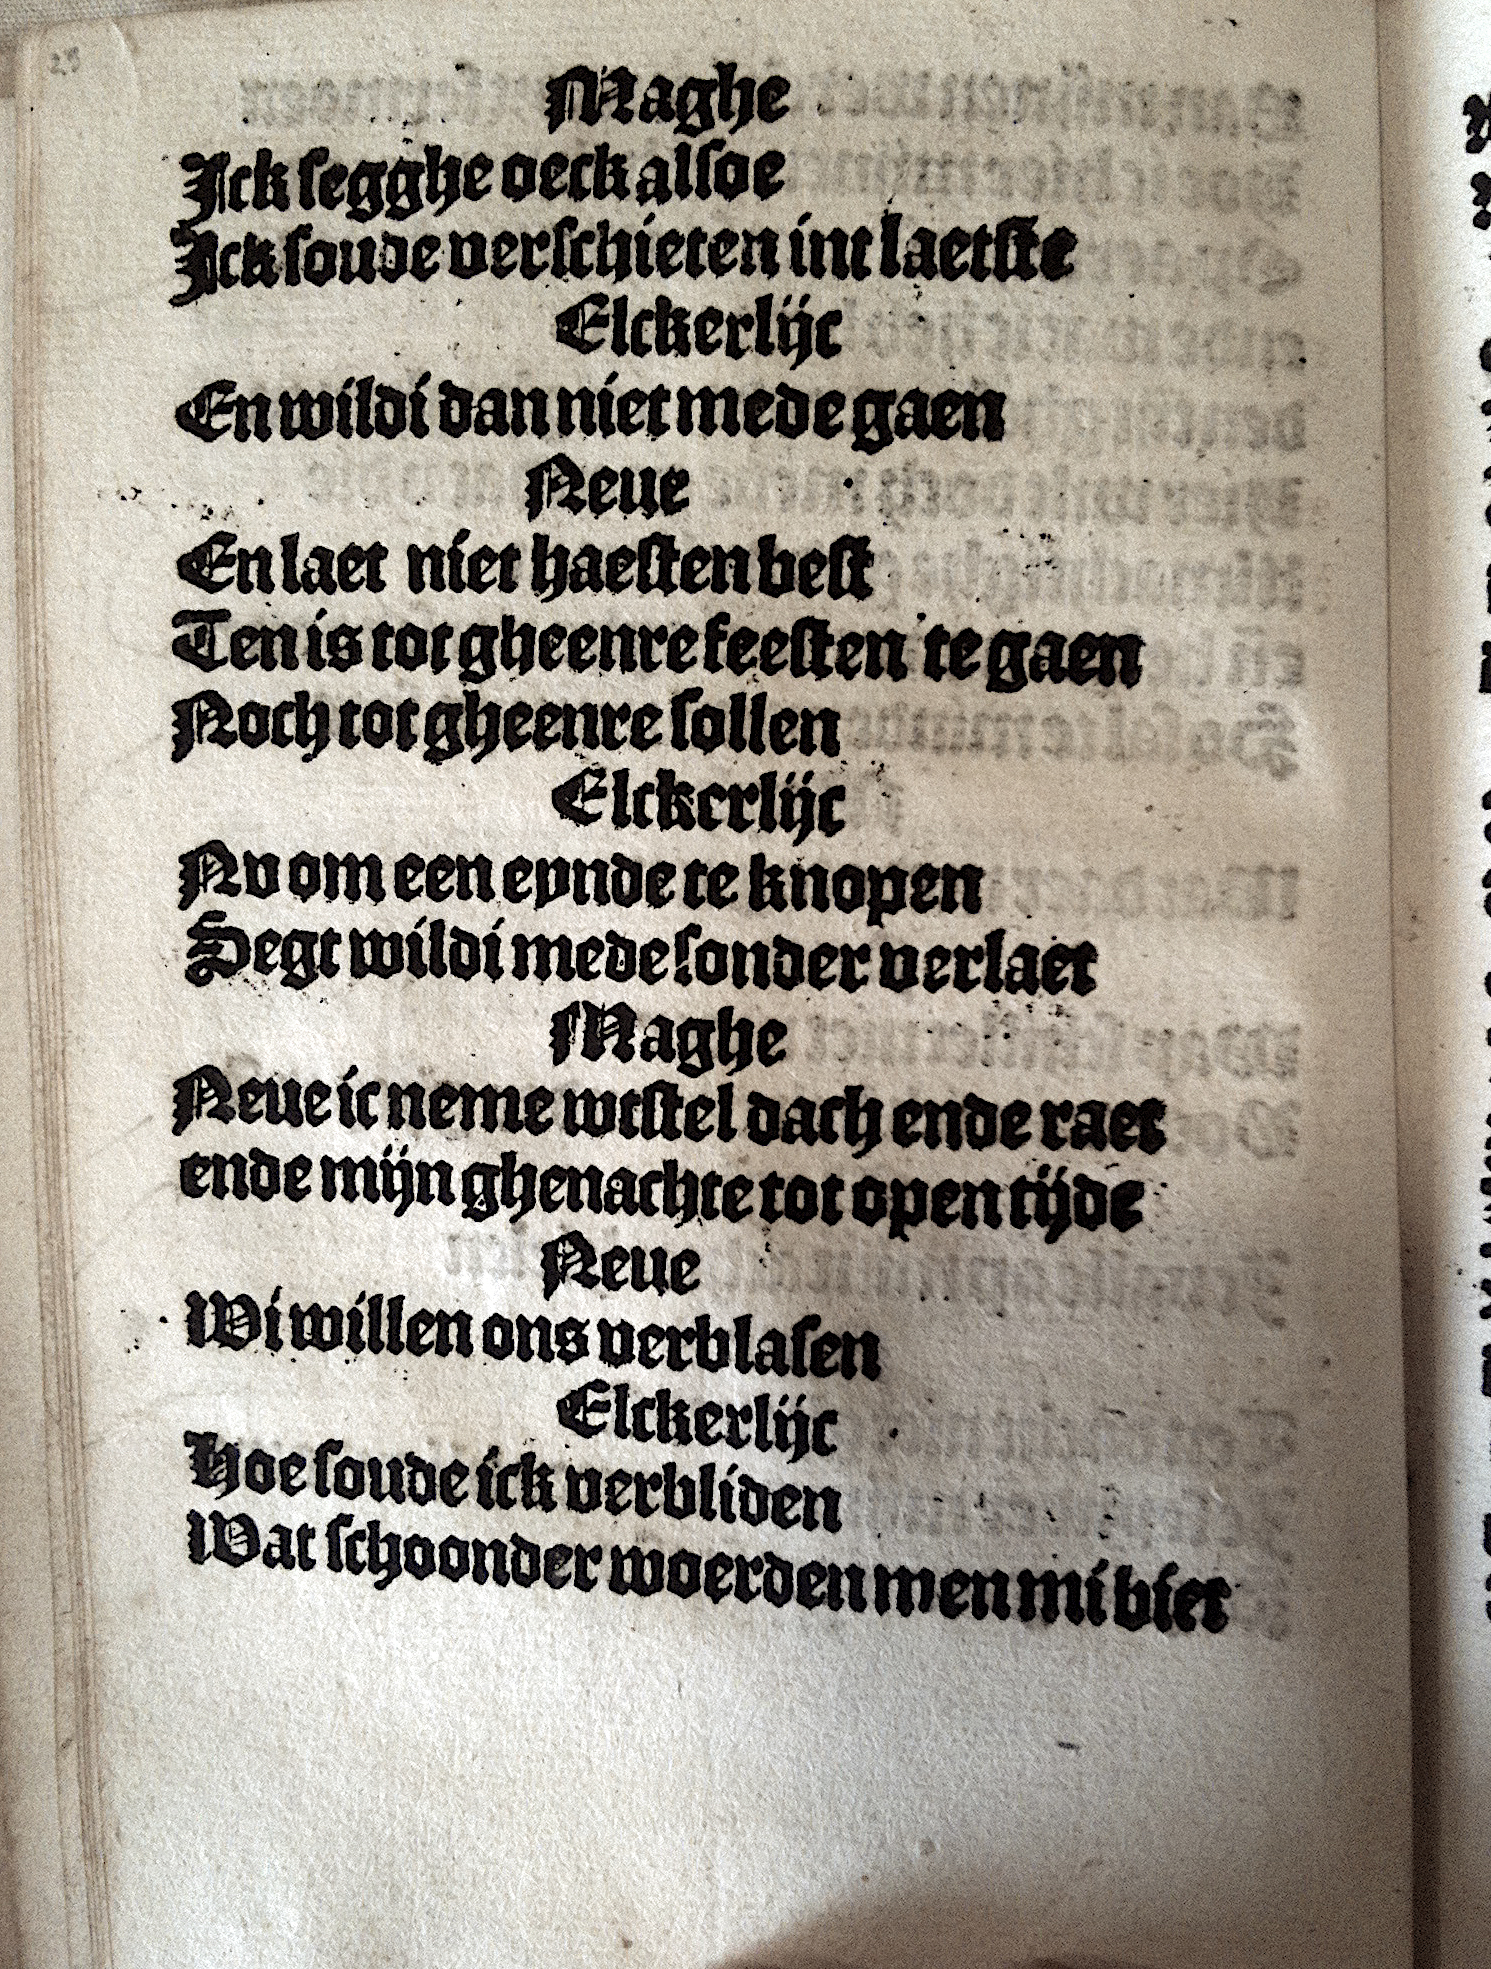 Maghe
Jck segghe oeck alsoe
Jck soude verschieten int laetste
Elckerlijc
En wildi dan niet mede gaen
Neue
En laet niet haesten best
Ten is tot gheenre feesten te gaen
Noch tot gheenre sollen
Elckerlijc
Nv om een eynde te knopen
Segt wildi mede sonder verlaet
Maghe
Neue ic neme wtstel dach ende raet
ende mijn ghenachte tot open tijde
Neue
Wi willen ons verblasen
Elckerlijc
Hoe soude ick verbliden
Wat schoonder woerden men mi biet